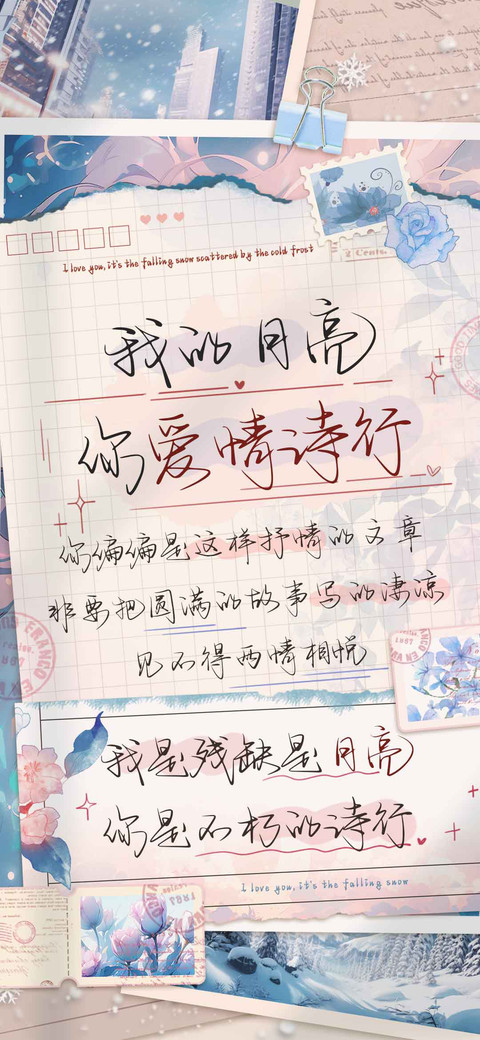 I love you, it's the falling snow scattered by the cold frost
2 Cents.
我的月亮
你爱情诗行
你偏偏是这样抒情的文章
非要把圆满的故事写的凄凉
见不得两情相悦
FRANCO
1867
我是残缺是月亮
你是不朽的诗行
I love you, it's the falling snow
1867